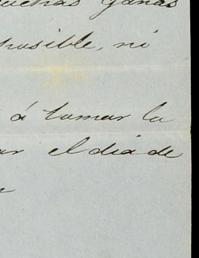 muchas ganas
posible, ni
á tomar la
ar el dia de